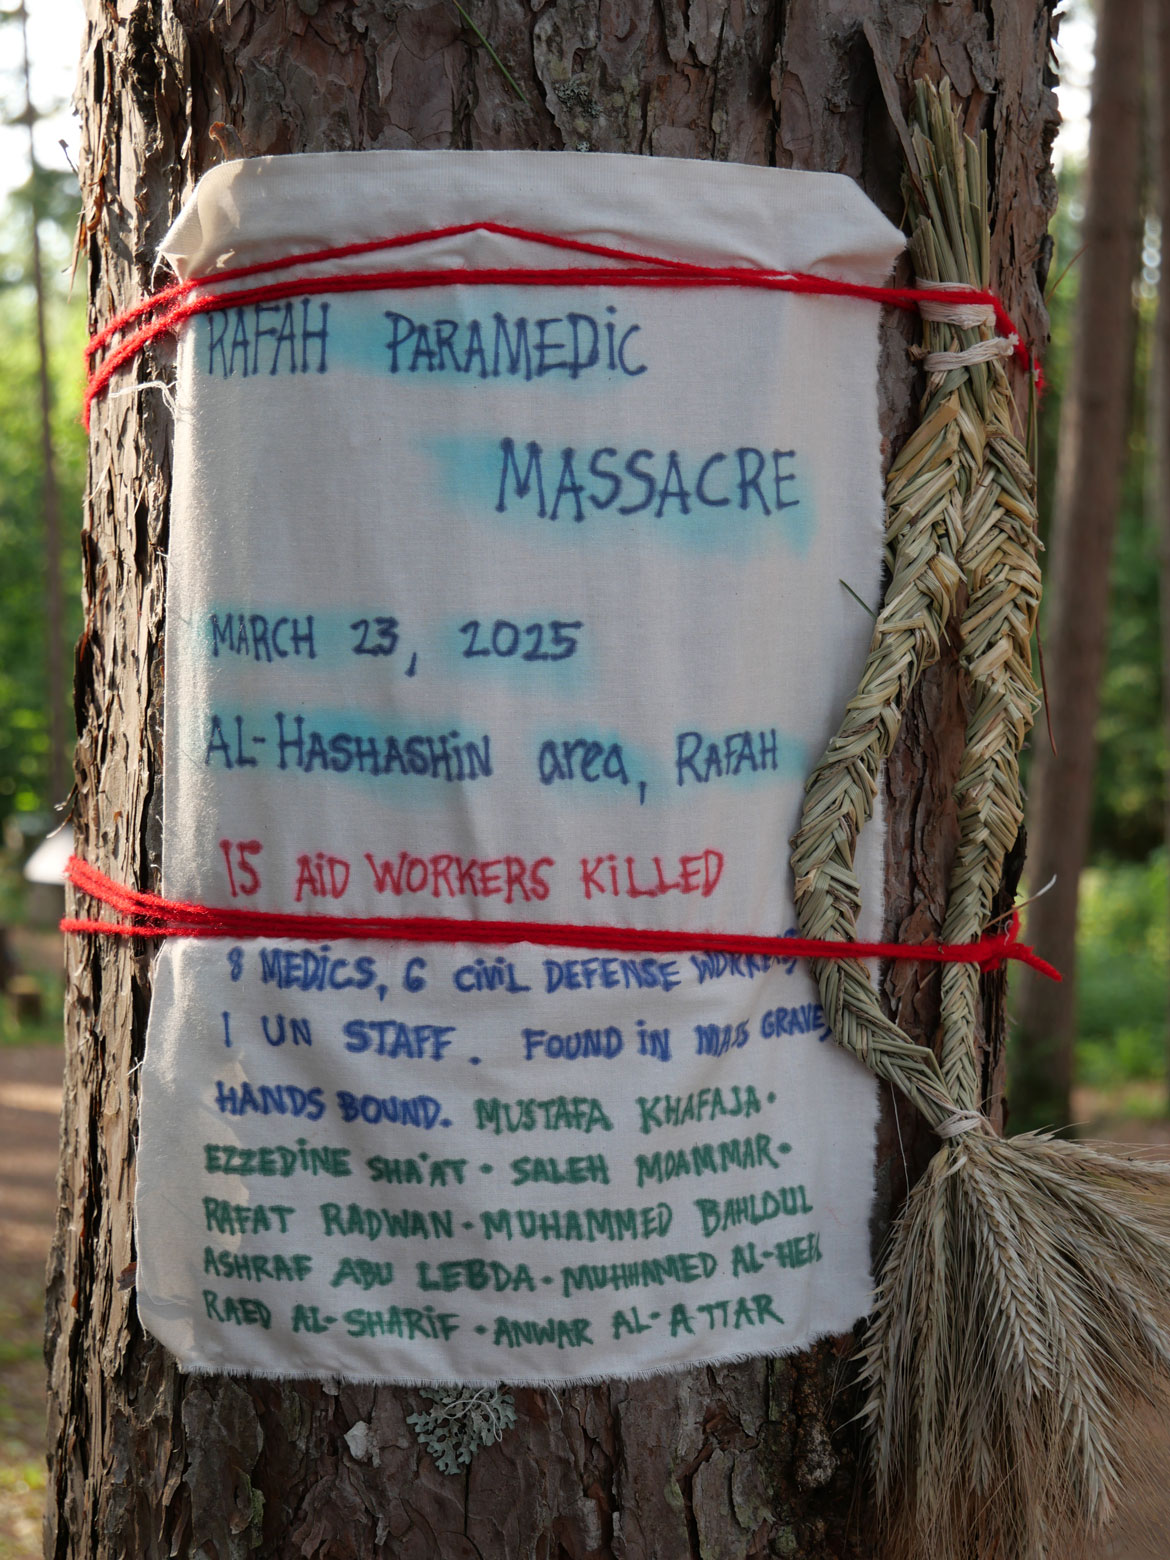 RAFAH PARAMEDIC
MASSACRE
MARCH 23, 2025
AL-HASHASHIN area, RAFAH
15 AID WORKERS KILLED
8 MEDICS, 6 CIVIL DEFENSE WORKERS
1 UN STAFF. FOUND IN MASS GRAVE,
HANDS BOUND. MUSTAFA KHAFAJA·
EZZEDINE SHA'AT · SALEH MOAMMAR·
RAFAT RADWAN · MUHAMMED BAHLOUL
ASHRAF ABU LEBDA · MUHHAMED AL-
RAED AL-SHARIF · ANWAR AL-ATTAR